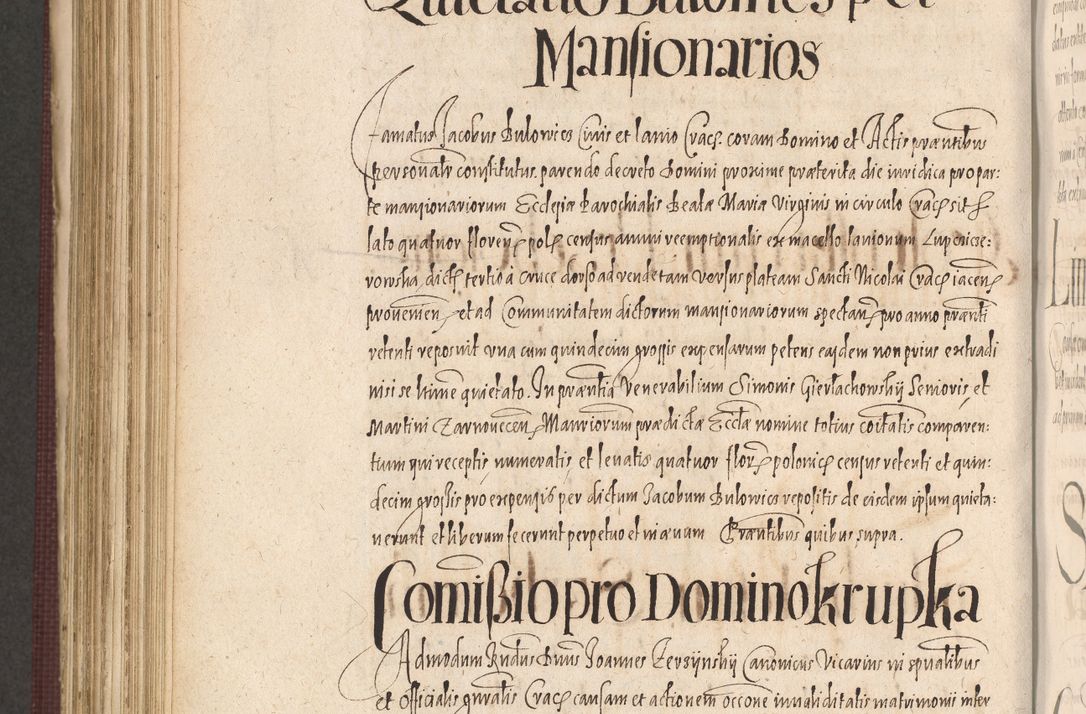 Quietatio Bulowies per
Mansionarios
Famatus Jacobus Bulowies Civis et lanio Crac. coram Domino et Actis præntibus
personalr constitutus. parendo decreto Domini proxime præterita die iuridica propar:
te mansionariorum Ecclesiæ Parochialis Beatæ Mariæ Virginis in circulo Crac sit
lato quatuor floren pol census annui reemptionalis ex macello lanionum
vowska, dict tertio à cruce dorso ad vendetam versus plateam Sancti Nicolai Crac iacen
provenien et ad Communitatem dictorum mansionariorum spectan, pro anno prænti
retenti reposuit una cum quindecim grossis expensarum petens easdem non prius extradi
nisi se hinc quietato. In præntia Venerabilium Simonis Gierlachowskij Senioris, et
Martini Zarnovecen, Manriorum prædictæ Eccliæ nomine totius coitatis comparen:
tium qui receptis numeratis et levatis quatuor flore polonic census retenti et quin:
decim grossis pro expensis per dictum Jacobum Bulowies repositis de eisdem ipsum quieta:
verunt et liberum fecerunt perpetuo et in ævum Præntibus quibus supra.
Comißio pro Domino krupka
Admodum Rndus Dnus Joannes Zerzijnskij Canonicus Vicarius in spualibus
et Officialis gnralis Crac causam et actionem occone invaliditatis matrimonii inter